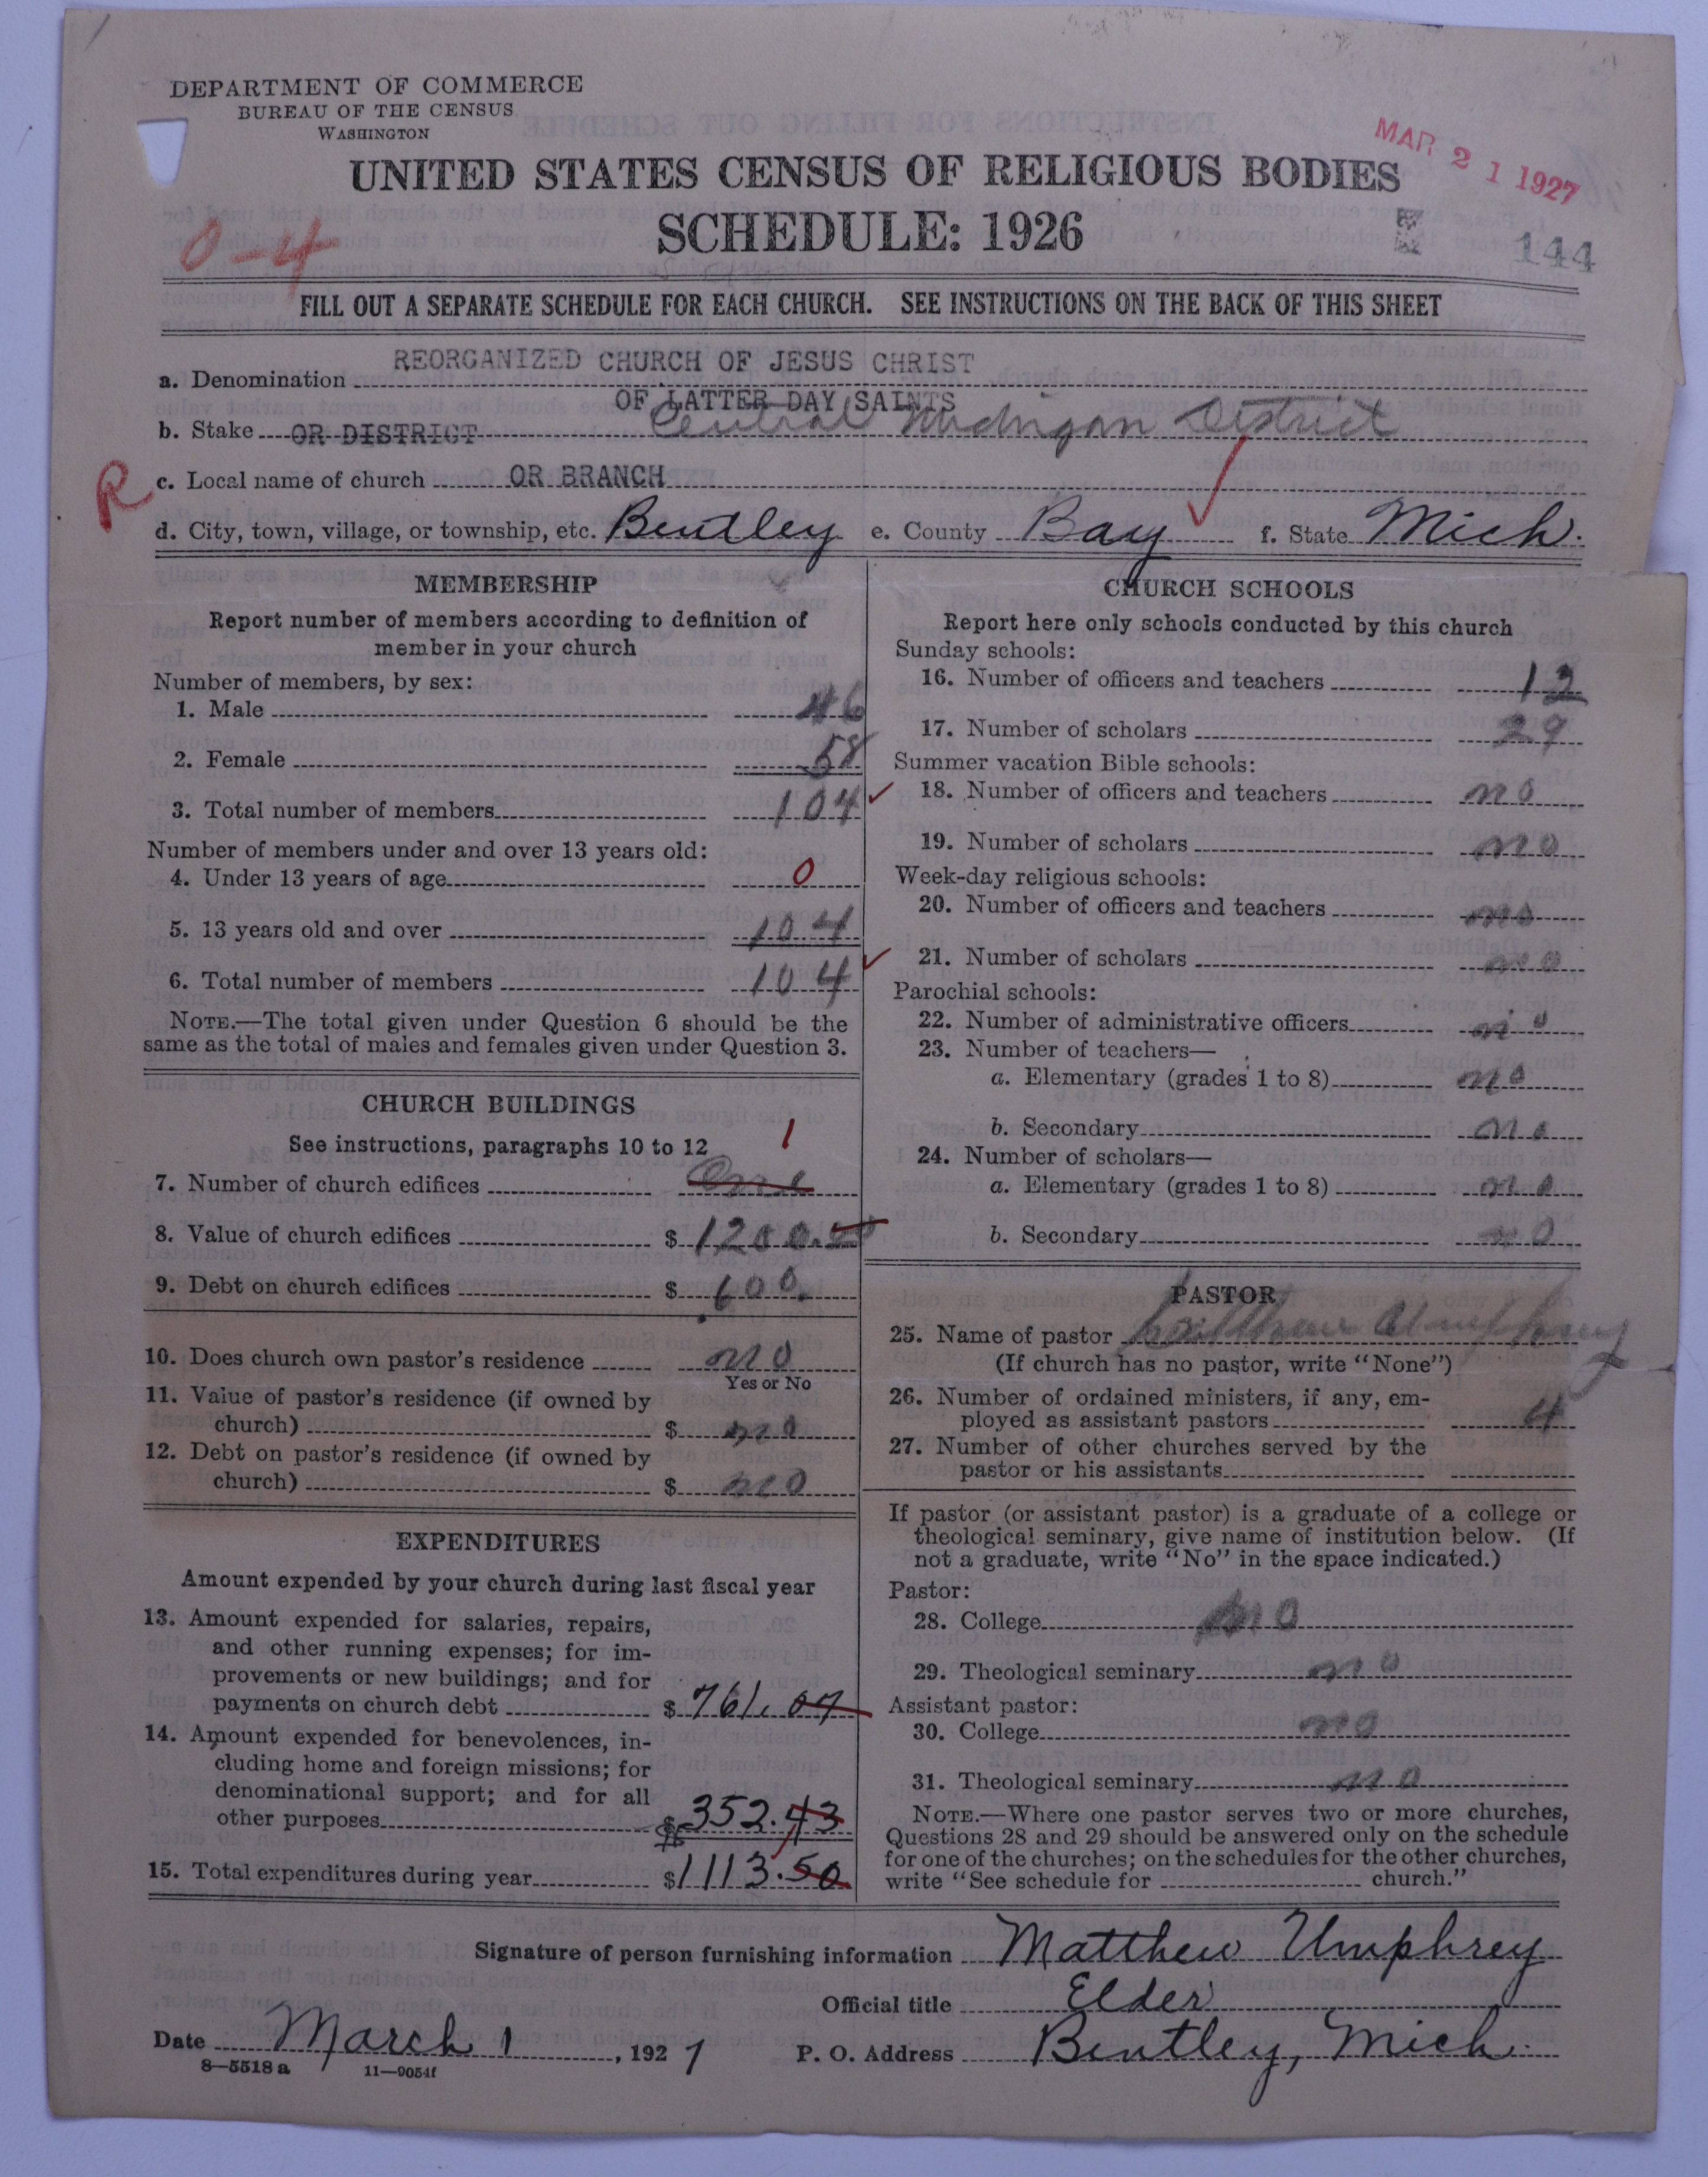 DEPARTMENT OF COMMERCE
BUREAU OF THE CENSUS
WASHINGTON
MAR 21 1927
UNITED STATES CENSUS OF RELIGIOUS BODIES
SCHEDULE: 1926
0-4
144
FILL OUT A SEPARATE SCHEDULE FOR EACH CHURCH. SEE INSTRUCTIONS ON THE BACK OF THIS SHEET
REORGANIZED CHURCH OF JESUS CHRIST
a. Denomination
OF LATTER DAY SAINTS
b. Stake OR DISTRICT Central Michigan District
R c. Local name of church OR BRANCH
d. City, town, village, or township, etc. Bentley e. County Bay f. State Mich.
MEMBERSHIP
Report number of members according to definition of
member in your church
Number of members, by sex:
1. Male 46
2. Female 58
3. Total number of members 104
Number of members under and over 13 years old:
4. Under 13 years of age 0
5. 13 years old and over 104
6. Total number of members 104
NOTE.—The total given under Question 6 should be the
same as the total of males and females given under Question 3.
CHURCH BUILDINGS
See instructions, paragraphs 10 to 12
1
7. Number of church edifices One
8. Value of church edifices $ 1200.00
9. Debt on church edifices $ 600.
10. Does church own pastor's residence no
Yes or No
11. Value of pastor's residence (if owned by
church) $ no
12. Debt on pastor's residence (if owned by
church) $ no
EXPENDITURES
Amount expended by your church during last fiscal year
13. Amount expended for salaries, repairs,
and other running expenses; for im-
provements or new buildings; and for
payments on church debt $ 761.07
14. Amount expended for benevolences, in-
cluding home and foreign missions; for
denominational support; and for all
other purposes $ 352.43
15. Total expenditures during year $ 1113.50
CHURCH SCHOOLS
Report here only schools conducted by this church
Sunday schools:
16. Number of officers and teachers 12
17. Number of scholars 29
Summer vacation Bible schools:
18. Number of officers and teachers no
19. Number of scholars no
Week-day religious schools:
20. Number of officers and teachers no
21. Number of scholars no
Parochial schools:
22. Number of administrative officers no
23. Number of teachers—
a. Elementary (grades 1 to 8) no
b. Secondary no
24. Number of scholars—
a. Elementary (grades 1 to 8) no
b. Secondary no
PASTOR
25. Name of pastor Matthew Umphrey
(If church has no pastor, write "None")
26. Number of ordained ministers, if any, em-
ployed as assistant pastors 4
27. Number of other churches served by the
pastor or his assistants
If pastor (or assistant pastor) is a graduate of a college or
theological seminary, give name of institution below. (If
not a graduate, write "No" in the space indicated.)
Pastor:
28. College no
29. Theological seminary no
Assistant pastor:
30. College no
31. Theological seminary no
NOTE.—Where one pastor serves two or more churches,
Questions 28 and 29 should be answered only on the schedule
for one of the churches; on the schedules for the other churches,
write "See schedule for church."
Signature of person furnishing information Matthew Umphrey
Official title Elder
Date March 1, 1927 P. O. Address Bentley, Mich.
8—5518 a 11—9054f